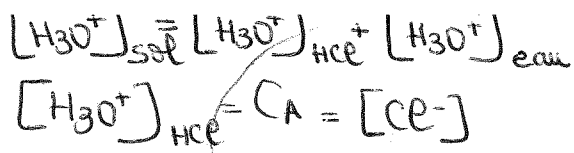 [H3O+]sol = [H3O+]HCl + [H3O+]eau
[H3O+]HCl = CA = [Cl-]